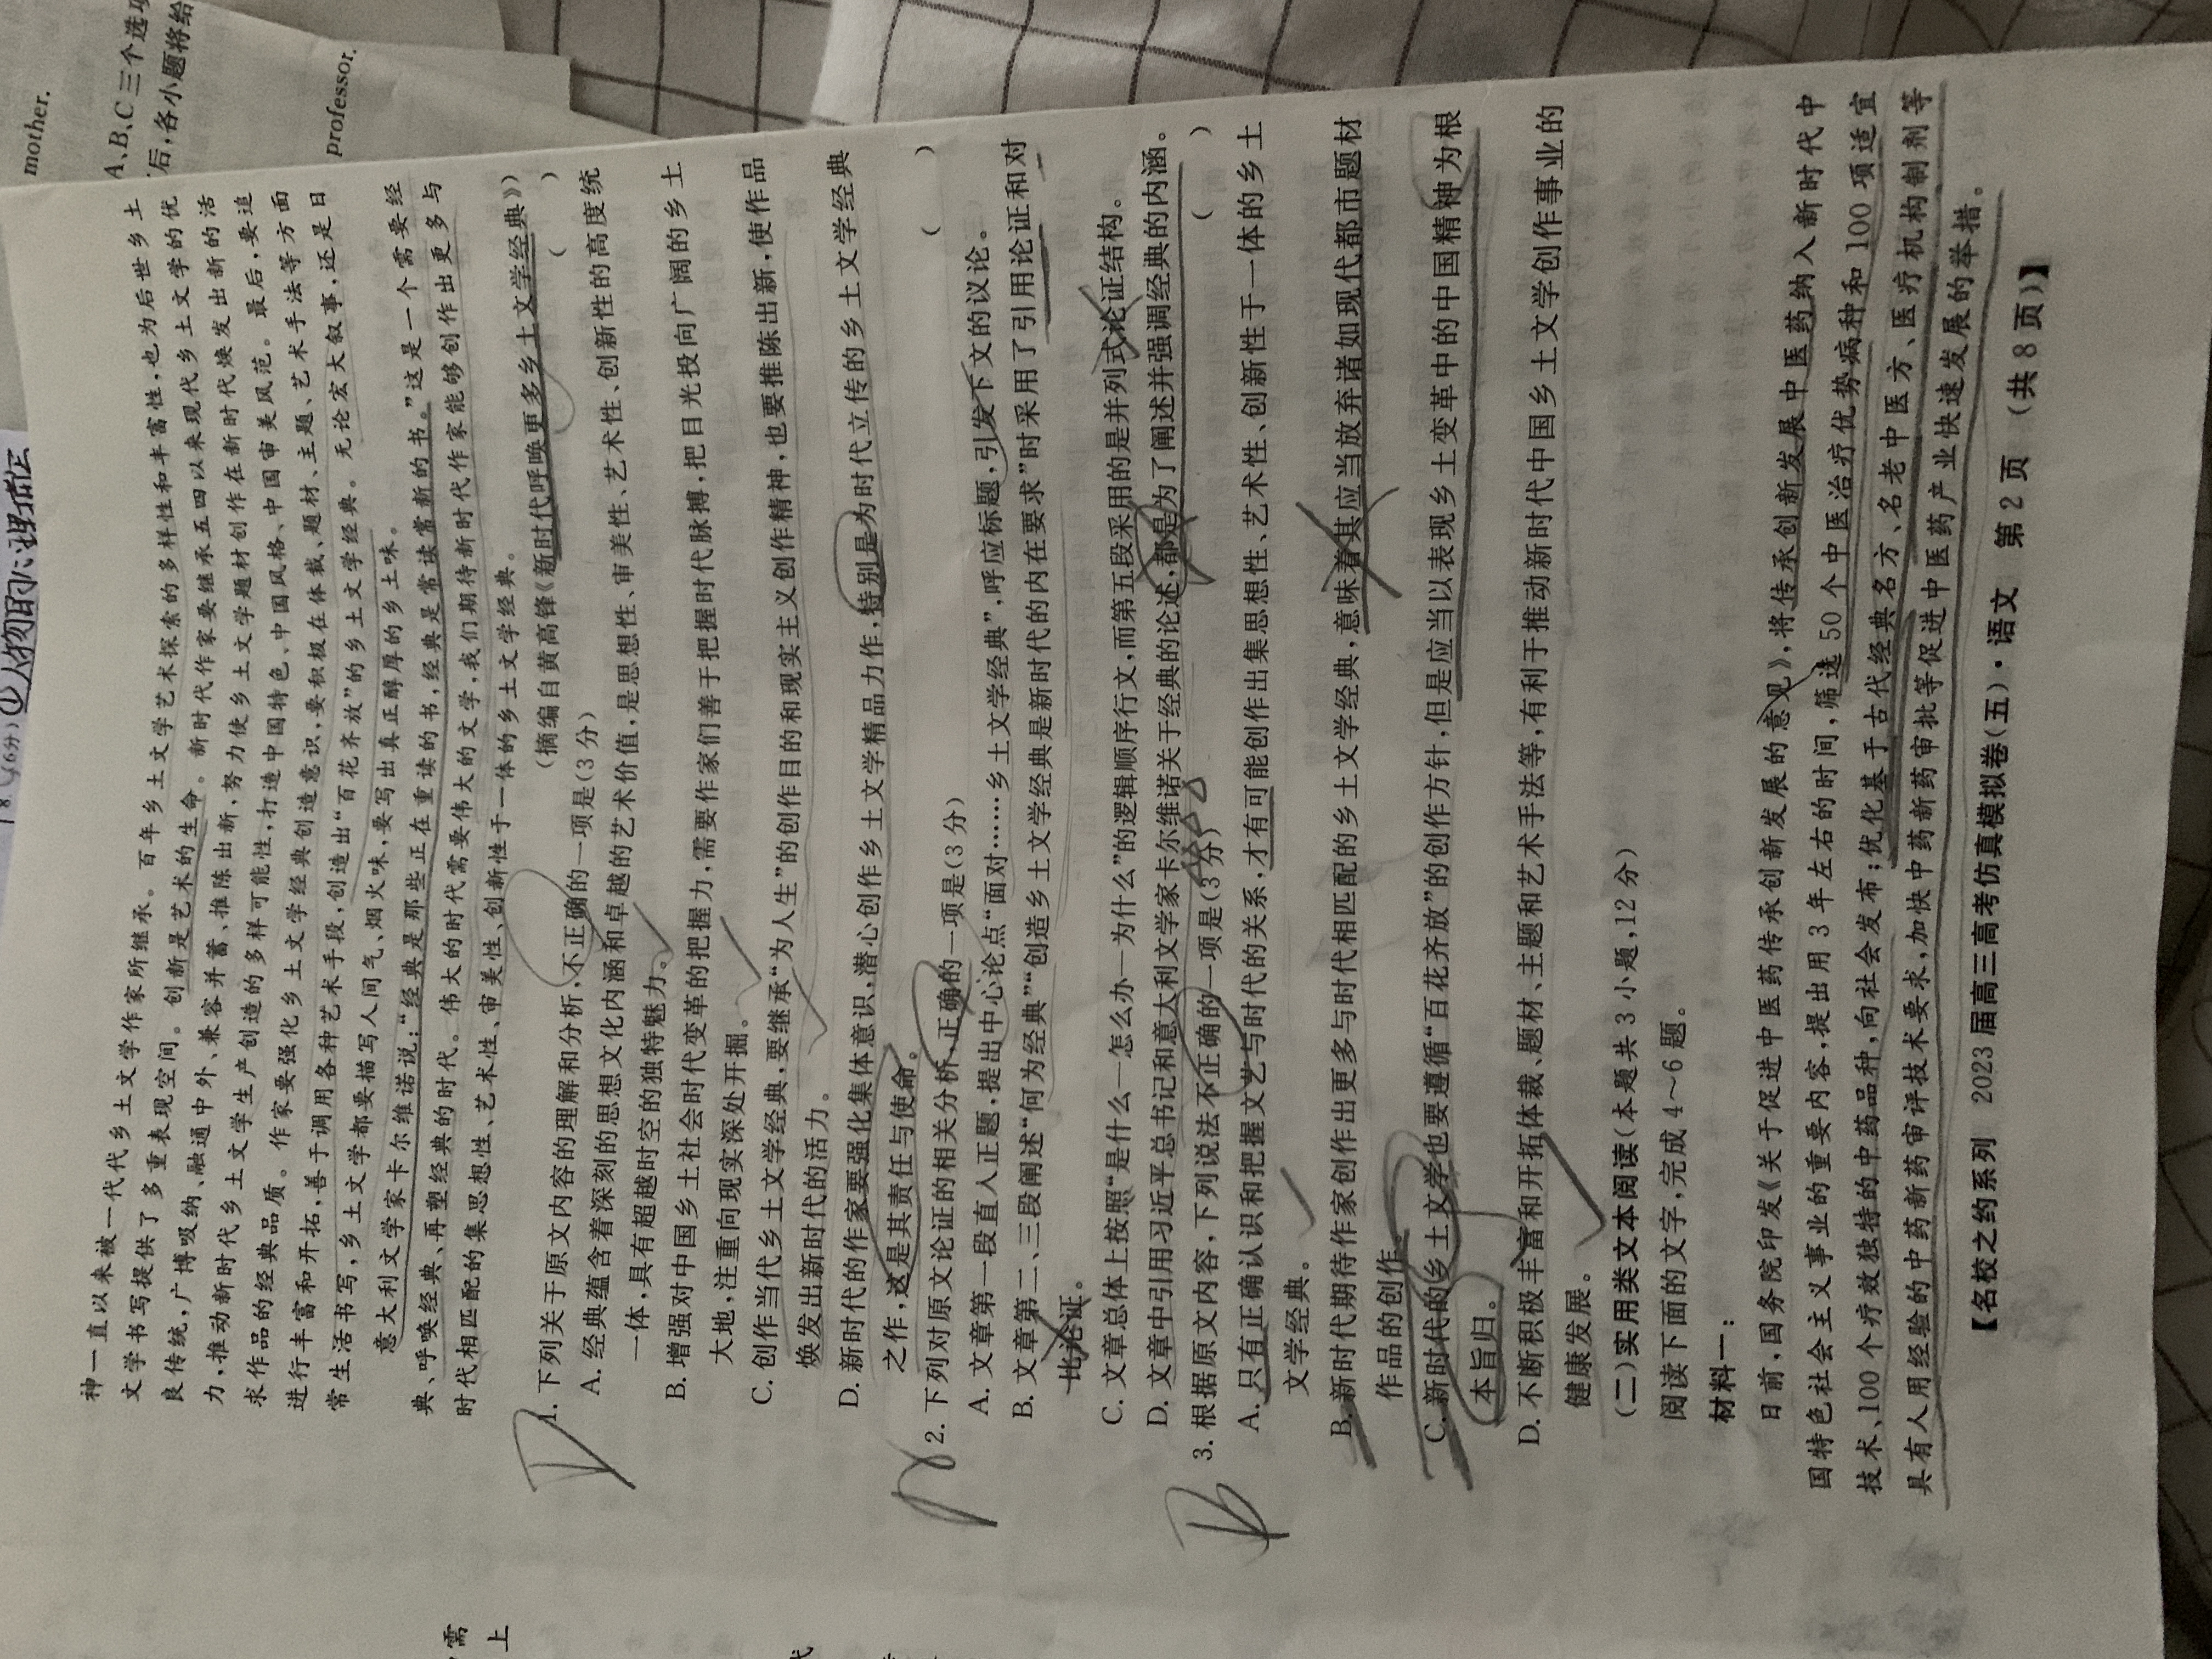 mother.
A、B、C三个选项
后,各小题将给
professor.
①人物的心理描写
神一直以来被一代代乡土文学作家所继承。百年乡土文学艺术探索的多样性和丰富性,也为后世乡土
文学书写提供了多重表现空间。创新是艺术的生命。新时代作家要继承五四以来现代乡土文学的优
良传统,广博吸纳、融通中外、兼容并蓄、推陈出新,努力使乡土文学题材创作在新时代焕发出新的活
力,推动新时代乡土文学生产创造的多样可能性,打造中国特色、中国风格、中国审美风范。最后,要追
求作品的经典品质。作家要强化乡土文学经典创造意识,要积极在体裁、题材、主题、艺术手法等方面
进行丰富和开拓,善于调用各种艺术手段,创造出“百花齐放”的乡土文学经典。无论宏大叙事,还是日
常生活书写,乡土文学都要描写人间气、烟火味,要写出真正醇厚的乡土味。
意大利文学家卡尔维诺说:“经典是那些正在重读的书,经典是常读常新的书。”这是一个需要经
典、呼唤经典、再塑经典的时代。伟大的时代需要伟大的文学,我们期待新时代作家能够创作出更多与
时代相匹配的集思想性、艺术性、审美性、创新性于一体的乡土文学经典。
(摘编自黄高锋《新时代呼唤更多乡土文学经典》)
1. 下列关于原文内容的理解和分析,不正确的一项是(3分) ( )
A. 经典蕴含着深刻的思想文化内涵和卓越的艺术价值,是思想性、审美性、艺术性、创新性的高度统
一体,具有超越时空的独特魅力。
B. 增强对中国乡土社会时代变革的把握力,需要作家们善于把握时代脉搏,把目光投向广阔的乡土
大地,注重向现实深处开掘。
C. 创作当代乡土文学经典,要继承“为人生”的创作目的和现实主义创作精神,也要推陈出新,使作品
焕发出新时代的活力。
D. 新时代的作家要强化集体意识,潜心创作乡土文学精品力作,特别是为时代立传的乡土文学经典
之作,这是其责任与使命。
2. 下列对原文论证的相关分析,正确的一项是(3分) ( )
A. 文章第一段直入正题,提出中心论点“面对……乡土文学经典”,呼应标题,引发下文的议论。
B. 文章第二、三段阐述“何为经典”“创造乡土文学经典是新时代的内在要求”时采用了引用论证和对
比论证。
C. 文章总体上按照“是什么—怎么办—为什么”的逻辑顺序行文,而第五段采用的是并列式论证结构。
D. 文章中引用习近平总书记和意大利文学家卡尔维诺关于经典的论述,都是为了阐述并强调经典的内涵。
3. 根据原文内容,下列说法不正确的一项是(3分) ( )
A. 只有正确认识和把握文艺与时代的关系,才有可能创作出集思想性、艺术性、创新性于一体的乡土
文学经典。
B. 新时代期待作家创作出更多与时代相匹配的乡土文学经典,意味着其应当放弃诸如现代都市题材
作品的创作。
C. 新时代的乡土文学也要遵循“百花齐放”的创作方针,但是应当以表现乡土变革中的中国精神为根
本旨归。
D. 不断积极丰富和开拓体裁、题材、主题和艺术手法等,有利于推动新时代中国乡土文学创作事业的
健康发展。
(二)实用类文本阅读(本题共3小题,12分)
阅读下面的文字,完成4~6题。
材料一:
日前,国务院印发《关于促进中医药传承创新发展的意见》,将传承创新发展中医药纳入新时代中
国特色社会主义事业的重要内容,提出用3年左右的时间,筛选50个中医治疗优势病种和100项适宜
技术、100个疗效独特的中药品种,向社会发布;优化基于古代经典名方、名老中医方、医疗机构制剂等
具有人用经验的中药新药审评技术要求,加快中药新药审批等促进中医药产业快速发展的举措。
【名校之约系列 2023届高三高考仿真模拟卷(五)·语文 第2页 (共8页)】
D
B
需
上